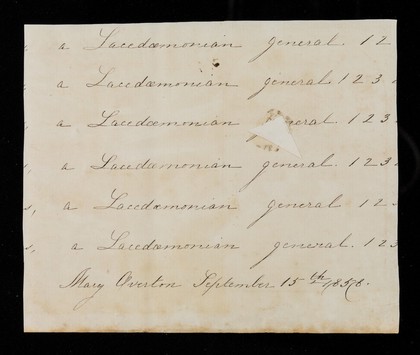 a Lacedæmonian general. 12
a Lacedæmonian general 123
a Lacedæmonian general 123
a Lacedæmonian general. 123
s, a Lacedæmonian general 123
s, a Lacedæmonian general. 123
Mary Overton September 15th